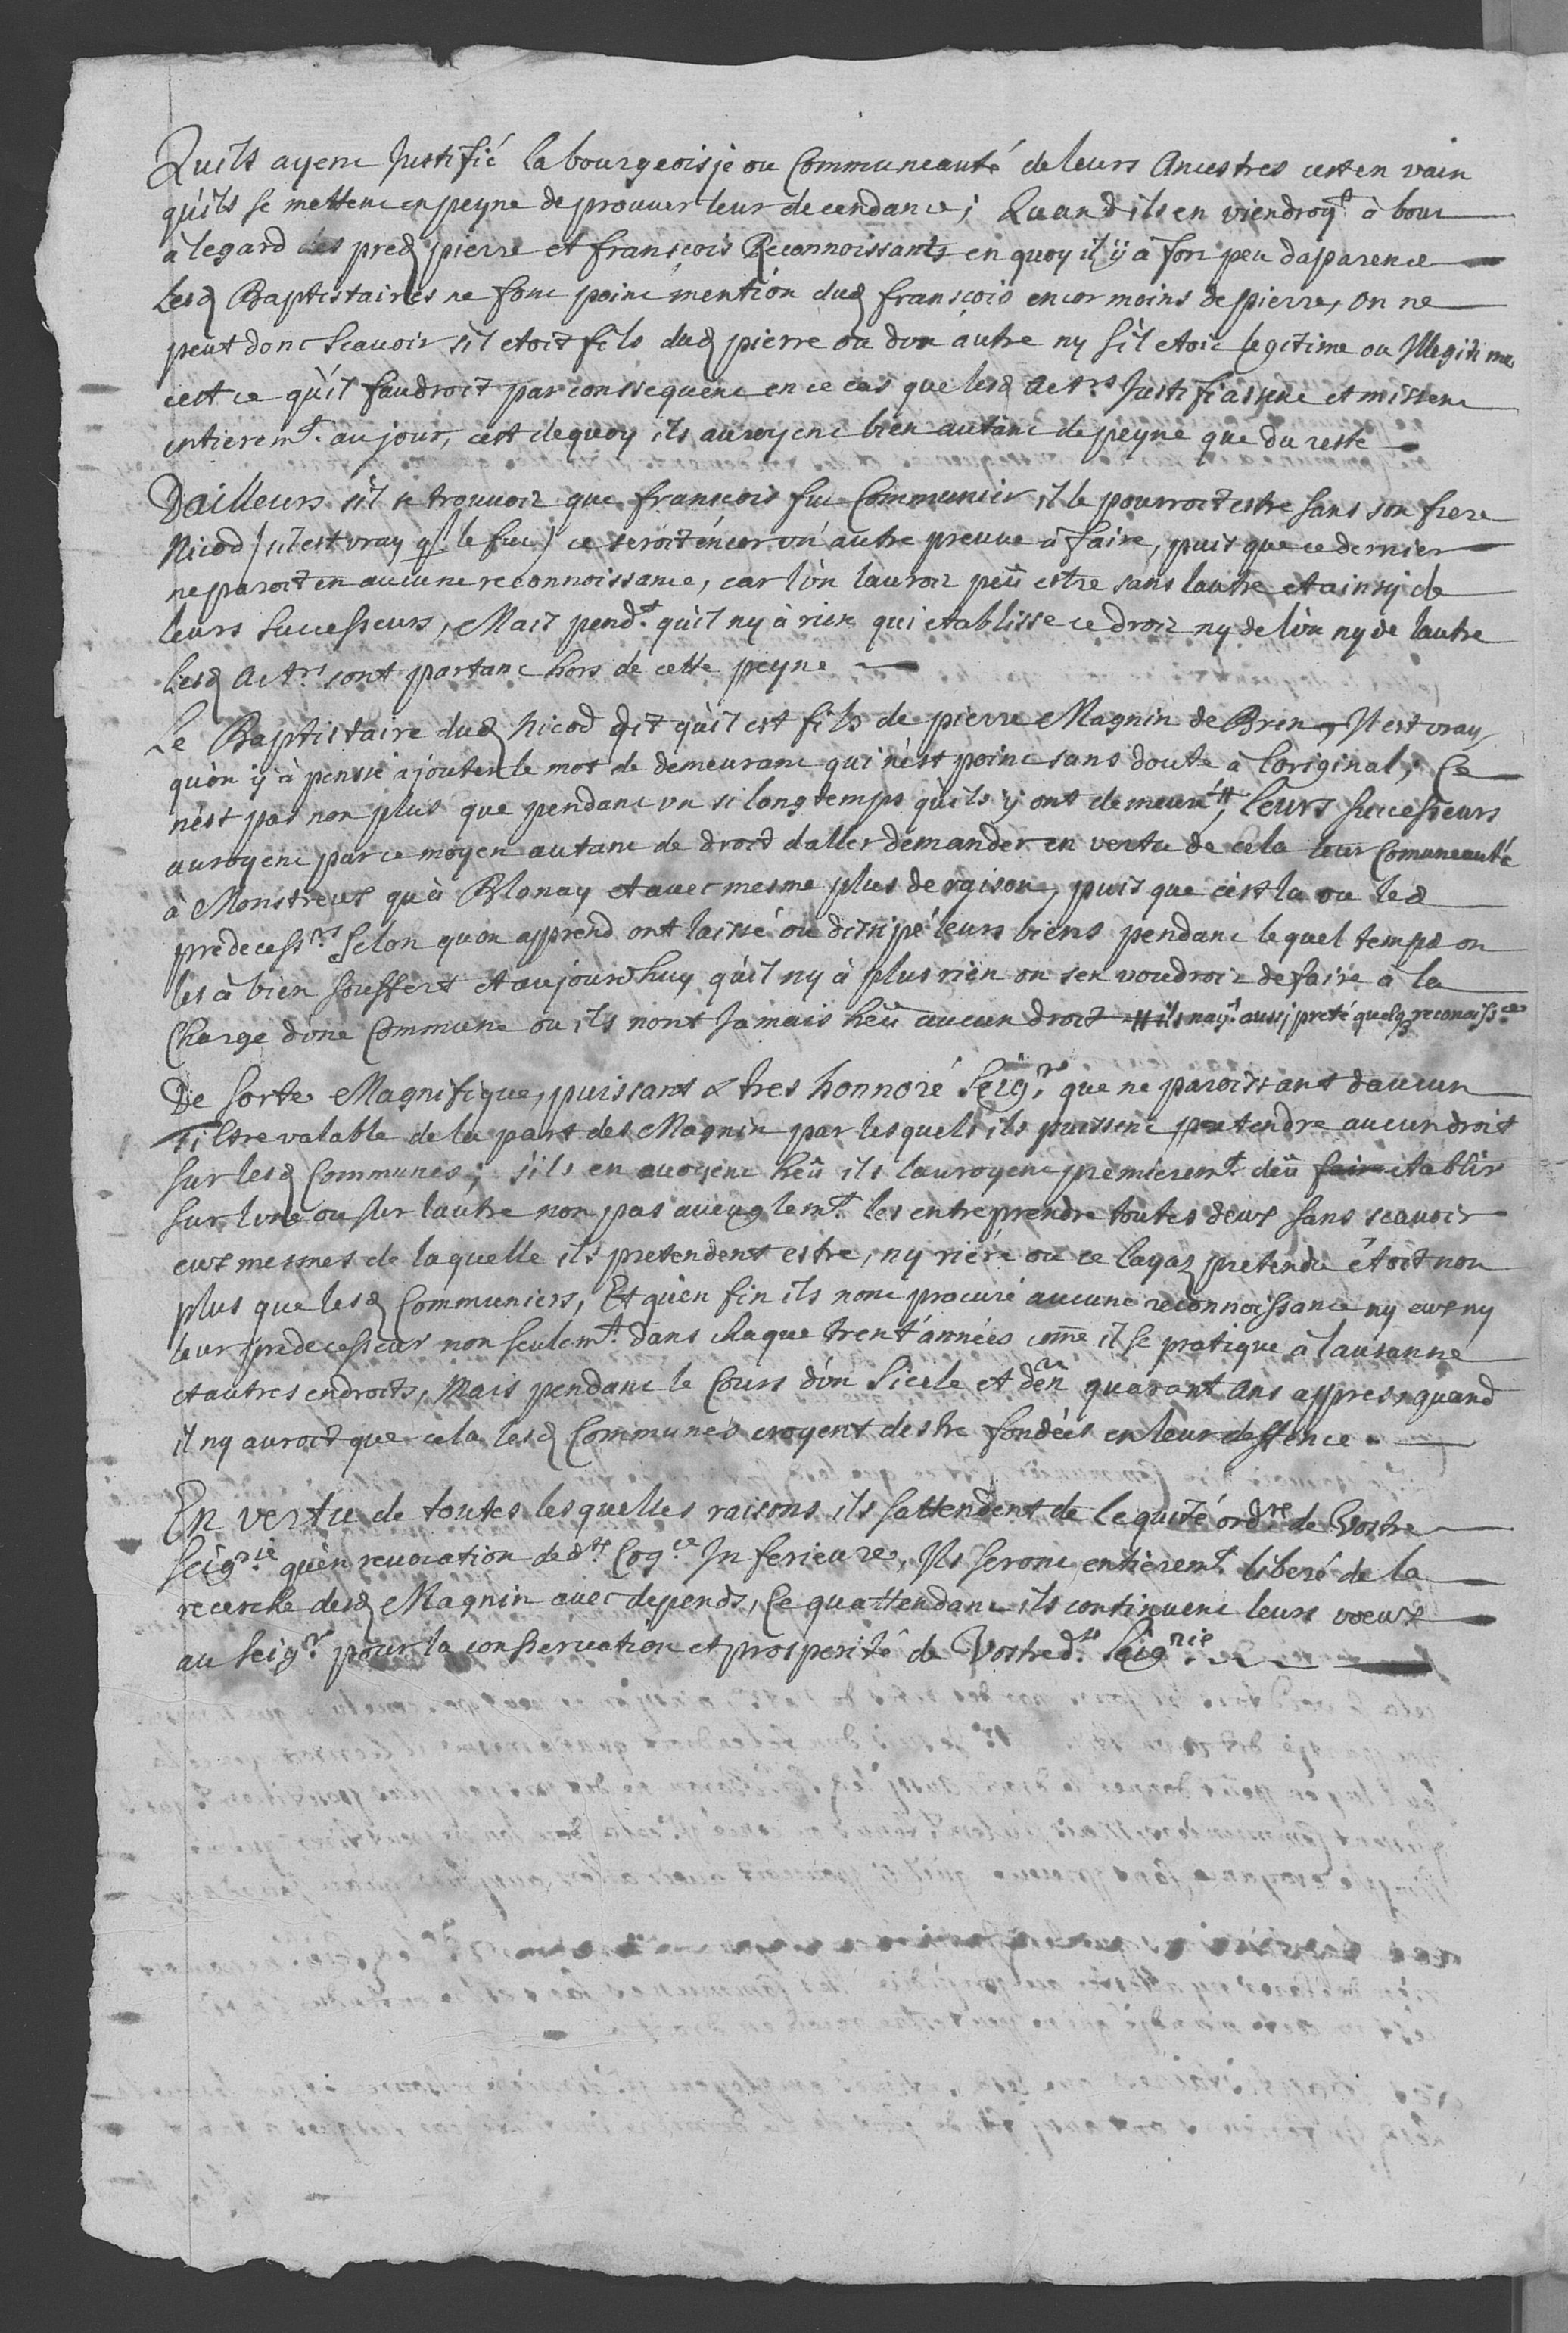 Quils ayent Justifié la bourgeoisje ou Communeauté de leurs Ancestres cest en vain
quils se mettent en peyne de prouuer leur decendance; Quand ils en viendroyt à bout
à legard des pred pierre et françois Reconnoissants en quoy il y à fort peu daparence
lesd Baptistaires ne font point mention dud françois encor moins de pierre, on ne
peut donc scauoir s'il etoit fils dud pierre ou dun autre ny s'il etoit legitime ou Illegitime
cest ce qu'il faudroit par conssequent en ce cas que lesd Actrs Justifiassent et missent
entieremt. au jour, cest dequoy ils auroyent bien autant de peyne que du reste
Dailleurs s'il se trouuoit que françois fut Communier il le pourroit estre sans son frere
Nicod (s'il est vray q' le fut) ce seroit encor vn autre preuue à faire, puis que ce dernier
ne paroit en aucune reconnoissance, car lún lauroit peu estre sans lautre et ainsy de
leurs successeurs, Mais pendt. qu'il ny à rien qui etablisse ce droit ny de lún ny de lautre
lesd Actrs sont partant hors de cette peyne
Le Baptistaire dud Nicod dit qu'il est fils de pierre Magnin de Bren, Il est vray
quon y à pensé ajouter le mot de demeurant qui nést point sans doute à l'original; Ce
nést pas non plus que pendant vn si long temps qu'ils y ont demeuré #, leurs successeurs
auroyent par ce moyen autant de droit daller demander en vertu de cela leur comuneauté
à Monstreux quà Blonay et auec mesme plus de raison, puis que cést la ou lesd
predecessrs selon quon apprend ont laissé ou dissipé leurs biens pendant lequel temps on
les à bien souffert et aujourdhuy qu'il ny à plus rien on sen voudroit defaire à la
Charge dune Commune ou ils nont Jamais heu aucun droit # ils nayt. aussj preté quelq reconoissce
De sorte Magnifique, puissant & tres honnoré Seigr. que ne paroissant daucun
Tiltre valable de la part des Magnin par lesquels ils puissent pretendre aucun droit
sur lesd Communes; s'ils en auoyent heu ils lauroyent premieremt. deu etablir
sur lune ou sur lautre non pas aueuglemt. les entreprendre toutes deux sans scauoir
eux mesmes de laquelle ils pretendent estre, ny riére ou ce pretendu étoit non
plus que lesd Communiers, Et quén fin ils nont procuré aucune reconnoissance ny eux ny
leur predecesseur non seulemt. dans chaque trent'années come il se pratique à lausanne
et autres endroits, Mais pendant le Cours d'ún Siecle et quarant ans appres, quand
il ny auroit que cela lesd Communes croyent destre fondées en leur deffence.
En vertu de toutes lesquelles raisons ils sattendent de lequité ordre de Vostre
Seigrie quén reuocation de dte Cogce Inferieure, Ils seront entièremt. liberé de la
recerche desd Magnin auec depends, Ce quattendant ils continuent leurs voeux
au Seigr. pour la conseruation et prosperité de Vostred.te Seigrie.